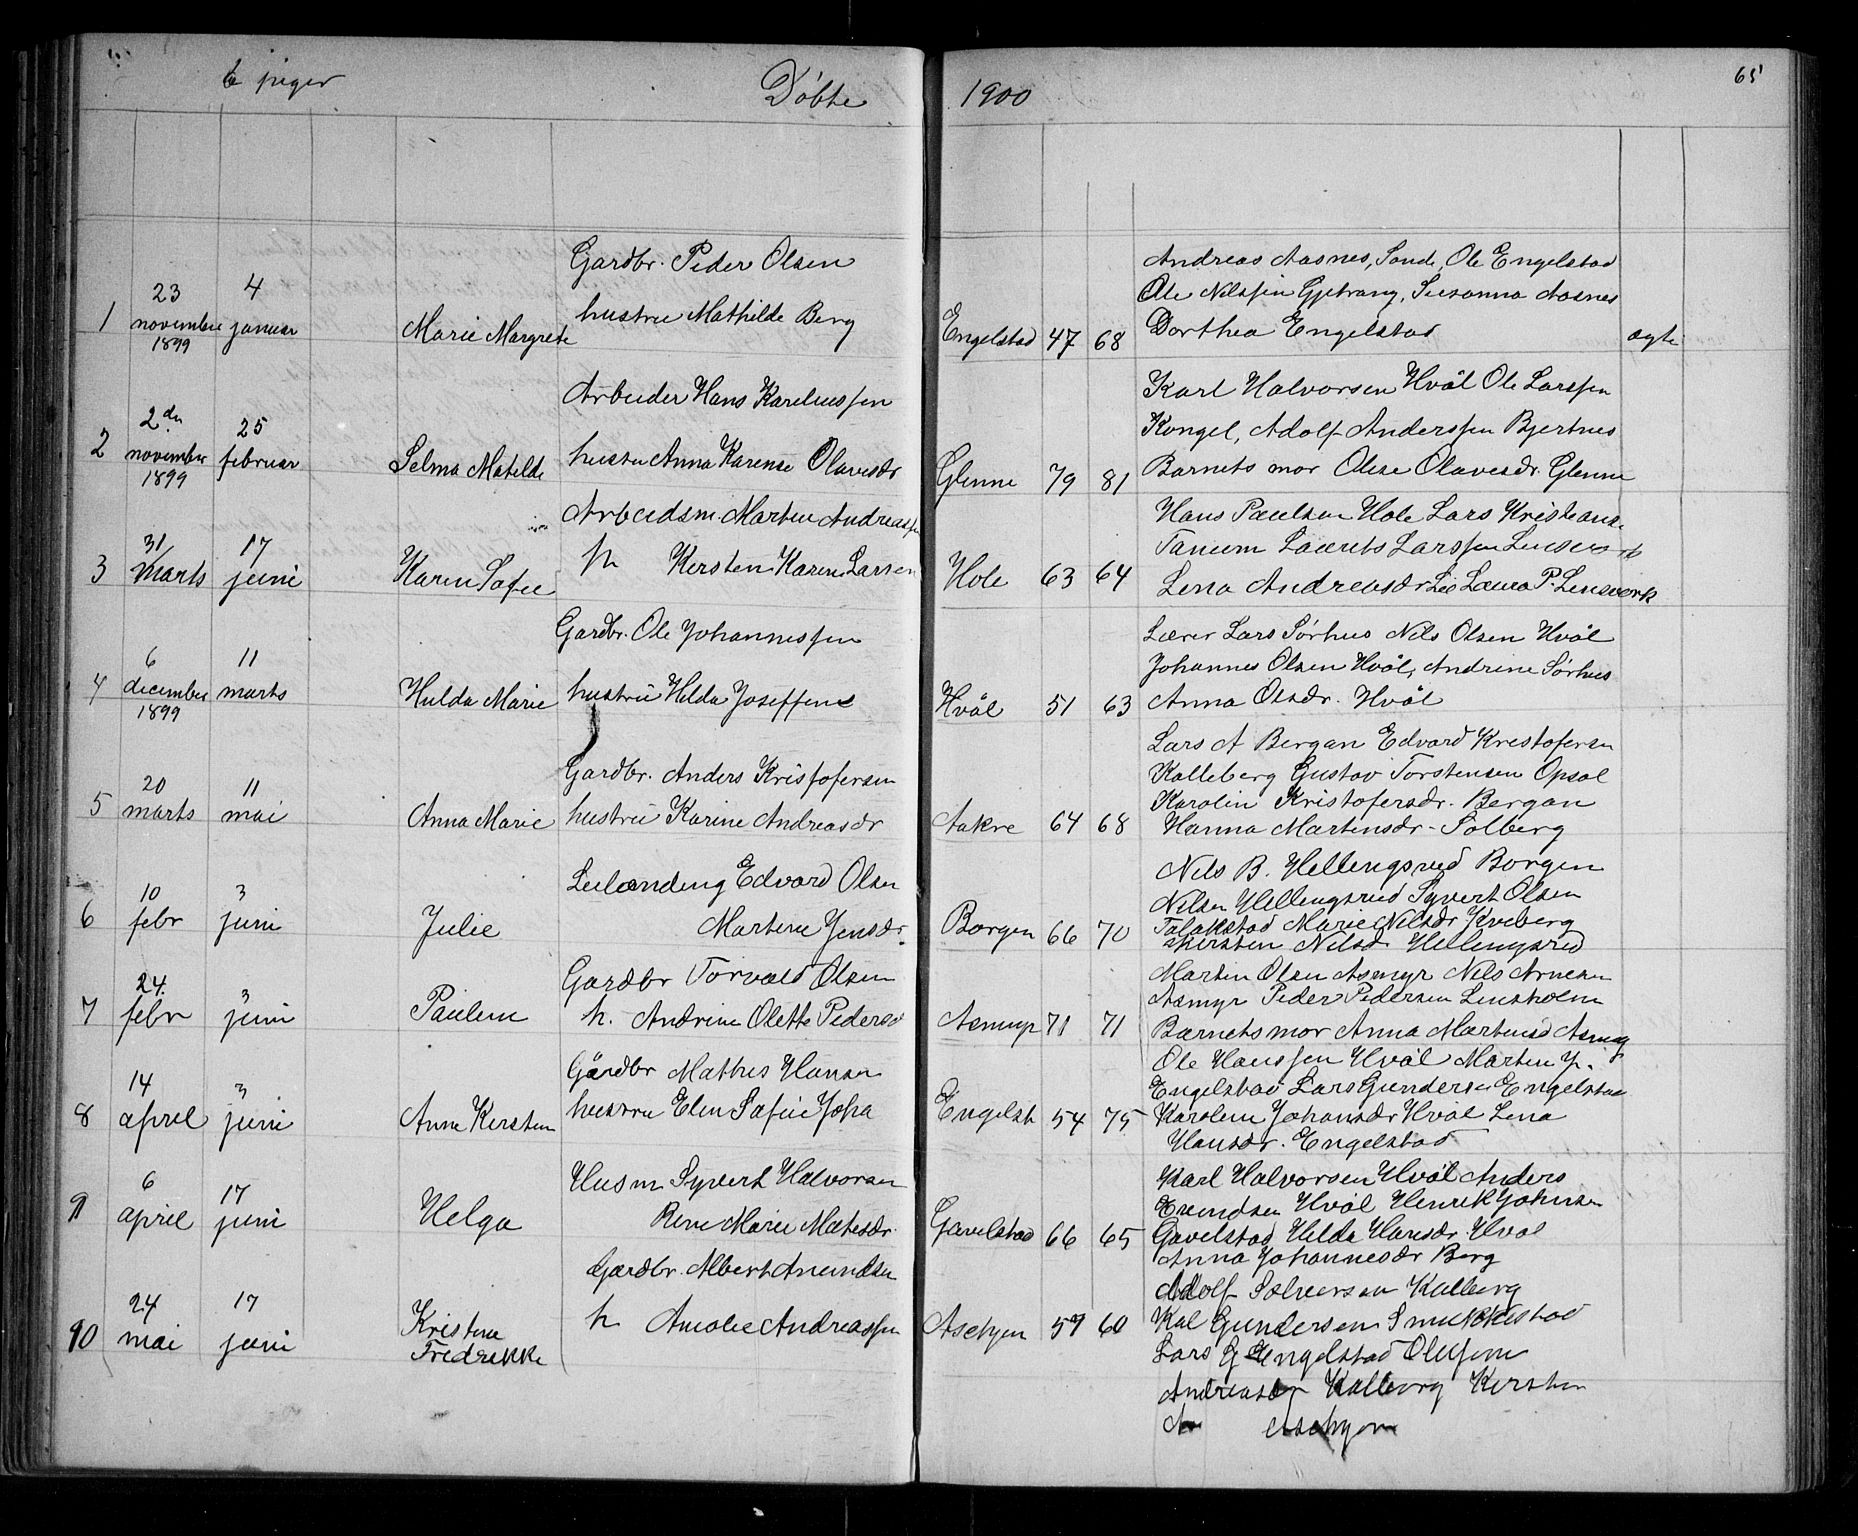 piger Døbte 1900 65
Gardbr. Peder Olsen Andreas Aasnes, Sand, Ole Engelstad
23 4 hustru Mathilde Berg Ole Nilssen Gjetvang, Susanna Aasnes
1 november januar Marie Margrete Engelstad 47 68 Dorthea Engelstad ægte
1899
Arbeider Hans Kareliussen Karl Halvorsen Hvål Ole Larssen
2den 25 Kongel, Adolf Anderssen Bjertnes
2 november februar Selma Matilde hustru Anna Karense Olavesdr Glenne 79 81 Barnets mor Olise Olavesdr. Glenne
1899
Arbeidsm. Martin Andreassen Hans Paulsen Hole Lars Kristians.
31 17 h Kersten Karine Larsen Tanum Laurits Larssen
3 marts juni Karen Sofie Hole 63 64 Lena Andreasdr Lie Laura P.
Gardbr. Ole Johannessen Lærer Lars Sørhus Nils Olsen Hvål
6 11 Johannes Olsen Hvål, Andrine Sørhus
4 december marts Hulda Marie hustru Hilda Joseffine Hvål 51 63 Anna Olsdr. Hvål
1899
Lars A Bergan Edvard Kristofersen
Gardbr. Anders Kristofersen Kalleberg Gustav Torstensen Opsal
20 11 Karolin Kristofersdr. Bergan
5 marts mai Anna Marie hustru Karine Andreasdr Aakre 64 68 Hanna Martensdr. Solberg
Leilending Edvard Olsen Nils B. Hellingsrud Borgen
10 3 Nilsen Hellingsrud Syvert Olsen
6 febr juni Julie Martine Jensdr. Borgen 66 70 Falakstad Marie Nilsdr Kveberg
Kersten Nilsd Hellingsrud
Gardbr Torvald Olsen Martin Olsen Asmyr Nils Arnesen
24. 3 Asmyr Peder Pedersen Linsholm
7 febr juni Pauline h. Andrine Olette Pedersd Asmyr 71 71 Barnets mor Anna Martinsd Asmyr
Gårdbr Mathis Hansen Ole Hanssen Hvål Martin J.
14 3 Engelstad Lars Gundersen Engelstad
8 april juni Anne Kersten hustru Elen Safie Joha Engelst 54 75 Karolin Johansdr Hvål Lina
Hansdr. Engelstad
Husm Syvert Halvorsen Karl Halvorsen Hvål Anders
6 17 Evendsen Hvål Henrik Johnsen
9 april juni Helga Marie Matisdr. Gavelstad 66 65 Gavelstad Hilda Hansdr. Hval
Anna Johannesdr Berg
Gardbr. Albert Anundsen Adolf Kalleberg
24 17 Kristine h Amalie Andreassen
10 mai juni Fredrikke Askjem 59 60 Kal Gundersen Smukkestad
Lars G Engelstad Olufine
Andreasdr Kalleberg Kersten
A Askjem